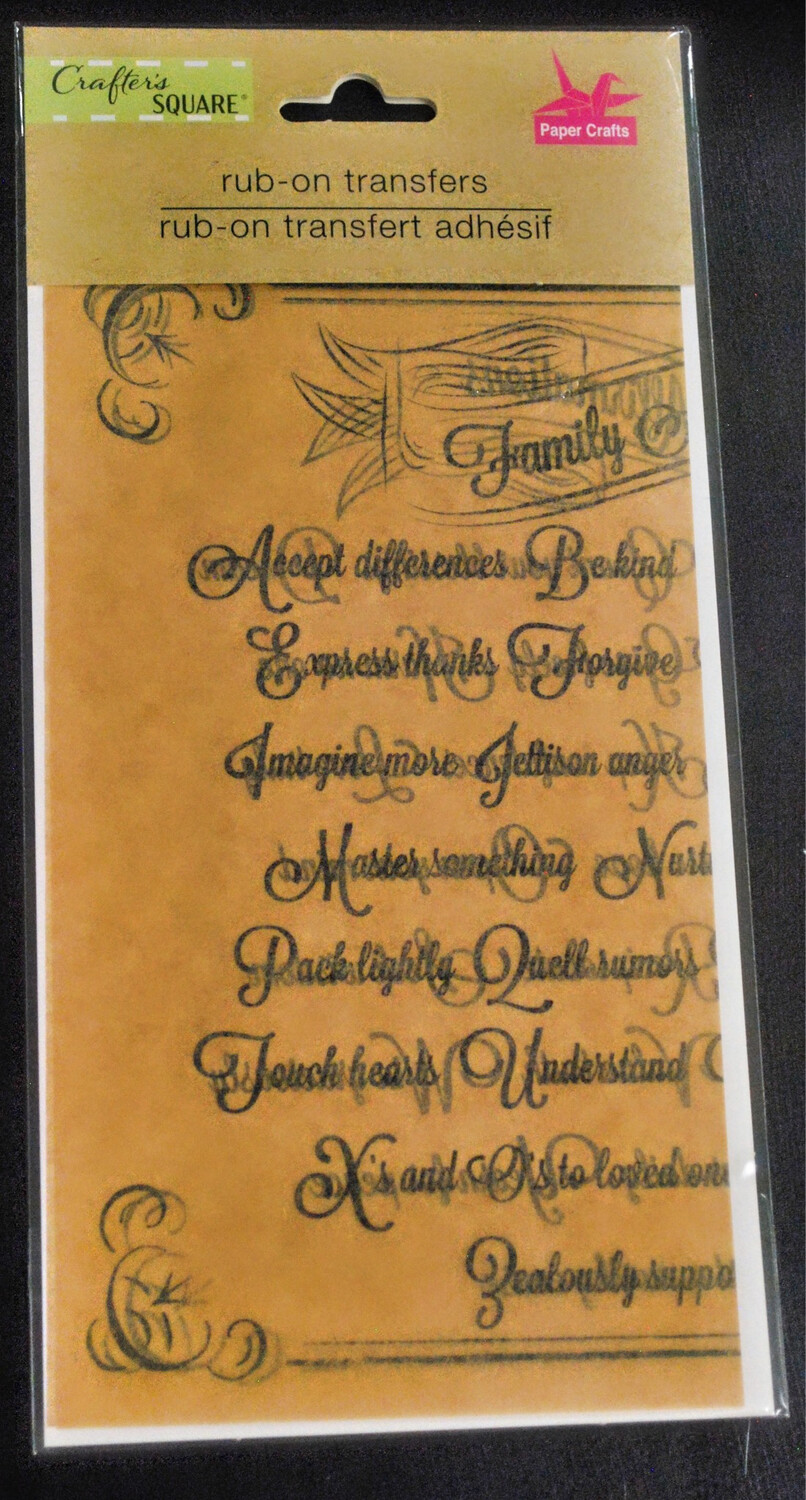 Crafter's
SQUARE®
Paper Crafts
rub-on transfers
rub-on transfert adhésif
Family
Accept differences Be kind
Express thanks Forgive
Imagine more Jettison anger
Master something Nurt
Pack lightly Quell rumors
Touch hearts Understand
X's and O's to loved one
Zealously suppo